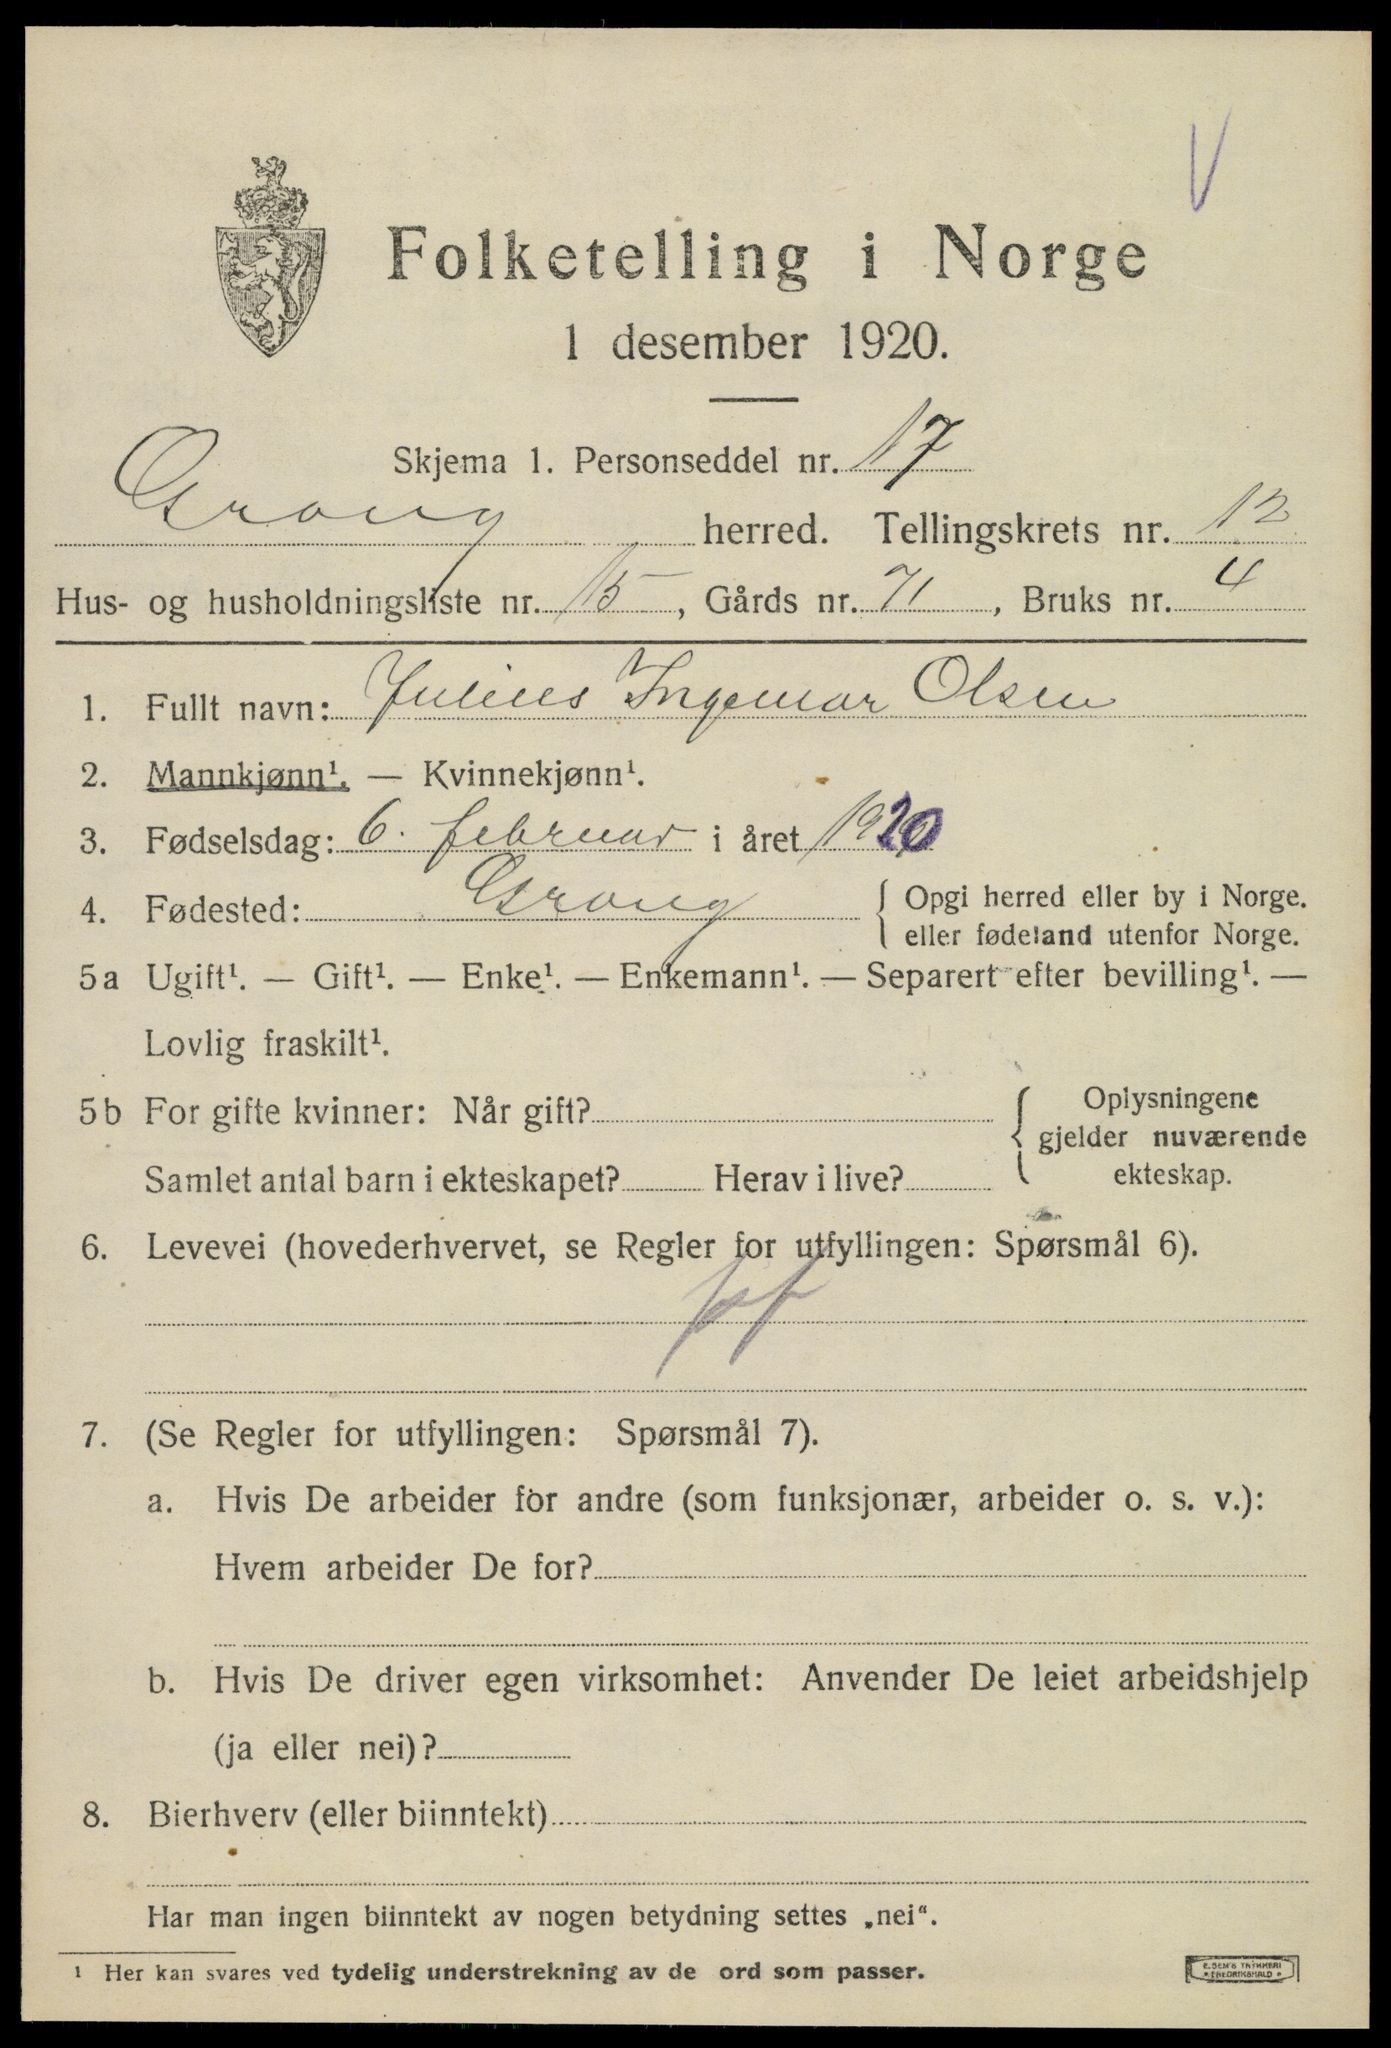 V
Folketelling i Norge
1 desember 1920.
Skjema 1. Personseddel nr. 17
Grong herred. Tellingskrets nr. 12
Hus- og husholdningsliste nr. 15, Gårds nr. 71, Bruks nr. 4
1. Fullt navn: Julius Ingemar Olsen
2. Mannkjønn¹. — Kvinnekjønn¹.
3. Fødselsdag: 6. februar i året 1920
4. Fødested: Grong { Opgi herred eller by i Norge.
eller fødeland utenfor Norge.
5a Ugift¹. — Gift¹. — Enke¹. — Enkemann¹. — Separert efter bevilling¹. —
Lovlig fraskilt¹.
5b For gifte kvinner: Når gift? { Oplysningene
gjelder nuværende
Samlet antal barn i ekteskapet? Herav i live? ekteskap.
6. Levevei (hovederhvervet, se Regler for utfyllingen: Spørsmål 6).
7. (Se Regler for utfyllingen: Spørsmål 7).
a. Hvis De arbeider for andre (som funksjonær, arbeider o. s. v.):
Hvem arbeider De for?
b. Hvis De driver egen virksomhet: Anvender De leiet arbeidshjelp
(ja eller nei)?
8. Bierhverv (eller biinntekt)
Har man ingen biinntekt av nogen betydning settes „nei“.
¹ Her kan svares ved tydelig understrekning av de ord som passer.
E. SEM'S TRYKKERI
• FREDRIKSHALD •